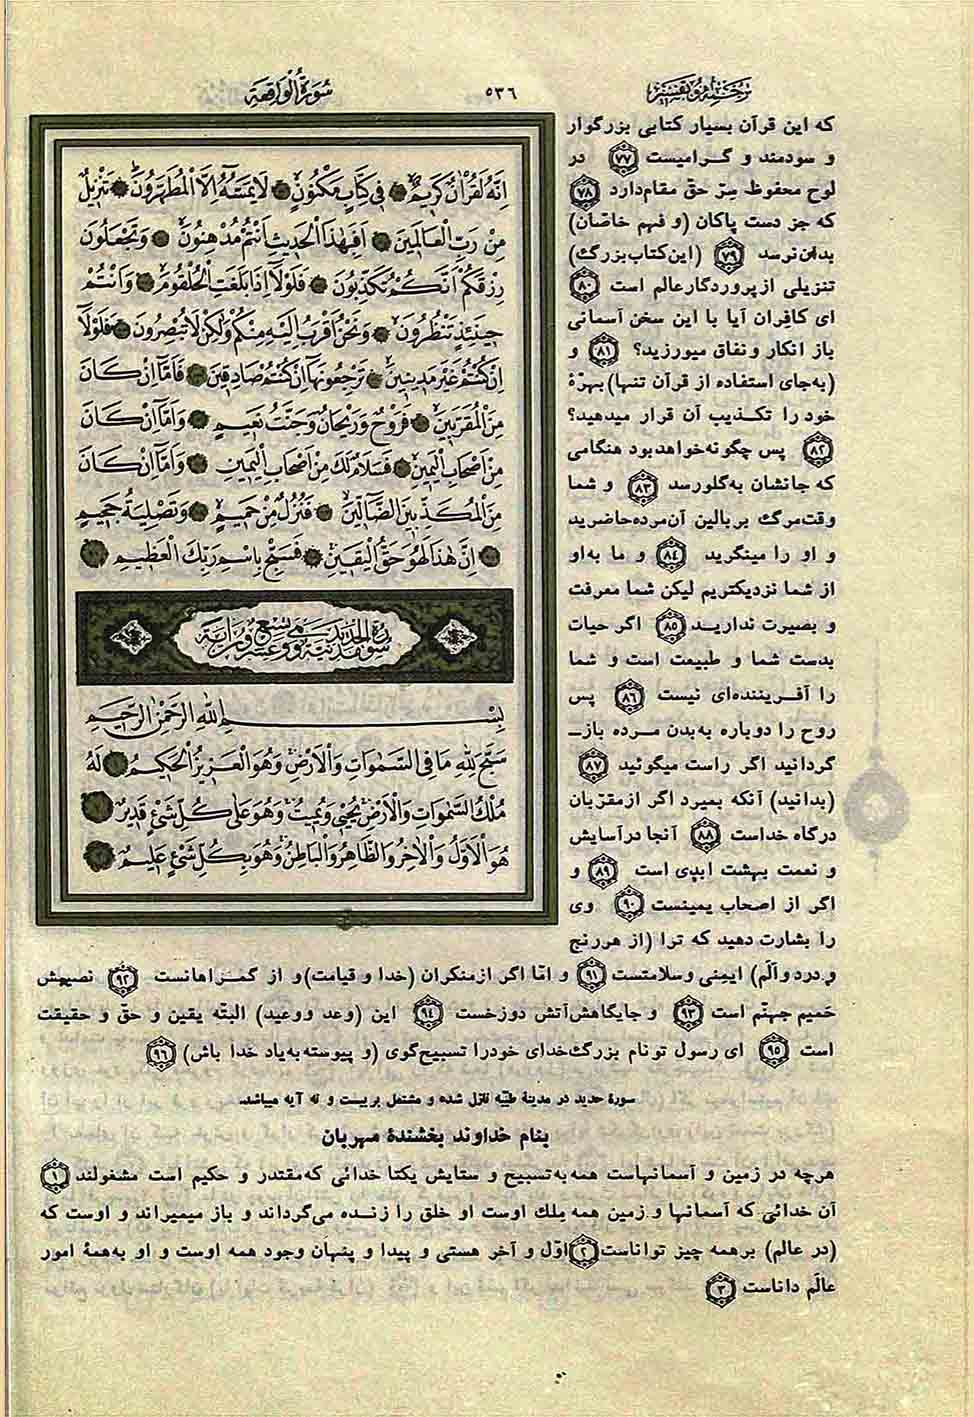 ترجمه و تفسیر
۵۳۶
سُورَةُ الْوَاقِعَة
اِنَّهُ لَقُرْاٰنٌ كَرِيمٌ فِى كِتَابٍ مَكْنُونٍ لَايَمَسُّهُ اِلَّا الْمُطَهَّرُونَ تَنْزِيلٌ
مِنْ رَبِّ الْعَالَمِينَ اَفَبِهٰذَا الْحَدِيثِ اَنْتُمْ مُدْهِنُونَ وَتَجْعَلُونَ
رِزْقَكُمْ اَنَّكُمْ تُكَذِّبُونَ فَلَوْلَا اِذَا بَلَغَتِ الْحُلْقُومَ وَاَنْتُمْ
حِينَئِذٍ تَنْظُرُونَ وَنَحْنُ اَقْرَبُ اِلَيْهِ مِنْكُمْ وَلٰكِنْ لَاتُبْصِرُونَ فَلَوْلَا
اِنْ كُنْتُمْ غَيْرَ مَدِينِينَ تَرْجِعُونَهَا اِنْ كُنْتُمْ صَادِقِينَ فَاَمَّا اِنْ كَانَ
مِنَ الْمُقَرَّبِينَ فَرَوْحٌ وَرَيْحَانٌ وَجَنَّتُ نَعِيمٍ وَاَمَّا اِنْ كَانَ
مِنْ اَصْحَابِ الْيَمِينِ فَسَلَامٌ لَكَ مِنْ اَصْحَابِ الْيَمِينِ وَاَمَّا اِنْ كَانَ
مِنَ الْمُكَذِّبِينَ الضَّالِّينَ فَنُزُلٌ مِنْ حَمِيمٍ وَتَصْلِيَةُ جَحِيمٍ
اِنَّ هٰذَا لَهُوَ حَقُّ الْيَقِينِ فَسَبِّحْ بِاسْمِ رَبِّكَ الْعَظِيمِ
بِسْمِ اللّٰهِ الرَّحْمٰنِ الرَّحِيمِ
سَبَّحَ لِلّٰهِ مَا فِى السَّمٰوَاتِ وَالْاَرْضِ وَهُوَ الْعَزِيزُ الْحَكِيمُ لَهُ
مُلْكُ السَّمٰوَاتِ وَالْاَرْضِ يُحْيِى وَيُمِيتُ وَهُوَ عَلٰى كُلِّ شَىْءٍ قَدِيرٌ
هُوَ الْاَوَّلُ وَالْاٰخِرُ وَالظَّاهِرُ وَالْبَاطِنُ وَهُوَ بِكُلِّ شَىْءٍ عَلِيمٌ
که این قرآن بسیار کتابی بزرگوار
و سودمند و گرامیست ۷۷ در
لوح محفوظ سِرّ حقّ مقام دارد ۷۸
که جز دست پاکان (و فهم خاصّان)
بدان نرسد ۷۹ (این کتاب بزرگ)
تنزیلی از پروردگار عالم است ۸۰
ای کافران آیا با این سخن آسمانی
باز انکار و نفاق میورزید؟ ۸۱ و
(به‌جای استفاده از قرآن تنها) بهرّهٔ
خود را تکذیب آن قرار میدهید؟
۸۲ پس چگونه خواهد بود هنگامی
که جانشان به گلو رسد ۸۳ و شما
وقت مرگ بر بالین آن مرده حاضرید
و او را مینگرید ۸۴ و ما به‌او
از شما نزدیکتریم لیکن شما معرفت
و بصیرت ندارید ۸۵ اگر حیات
بدست شما و طبیعت است و شما
را آفریننده‌ای نیست ۸۶ پس
روح را دوباره به‌بدن مرده باز‌ـ
گردانید اگر راست میگوئید ۸۷
(بدانید) آنکه بمیرد اگر از مقرّبان
درگاه خداست ۸۸ آنجا در آسایش
و نعمت بهشت ابدی است ۸۹ و
اگر از اصحاب یمینست ۹۰ وی
را بشارت دهید که ترا (از هر رنج
و درد و الَم) ایمنی و سلامتست ۹۱ و امّا اگر از منکران (خدا و قیامت) و از گمراهانست ۹۲ نصیبش
حَمیم جهنّم است ۹۳ و جایگاهش آتش دوزخست ۹۴ این (وعد و وعید) البتّه یقین و حقّ و حقیقت
است ۹۵ ای رسول تو نام بزرگ خدای خود را تسبیح گوی (و پیوسته به‌یاد خدا باش) ۹۶
سورهٔ حدید در مدینهٔ طیّبه نازل شده و مشتمل بر بیست و نه آیه میباشد.
بنام خداوند بخشندهٔ مهربان
هر چه در زمین و آسمانهاست همه به تسبیح و ستایش یکتا خدائی که مقتدر و حکیم است مشغولند ۱
آن خدائی که آسمانها و زمین همه مِلك اوست او خلق را زنده می‌گرداند و باز میمیراند و اوست که
(در عالم) بر همه چیز تواناست ۲ اوّل و آخر هستی و پیدا و پنهان وجود همه اوست و او به همهٔ امور
عالَم داناست ۳